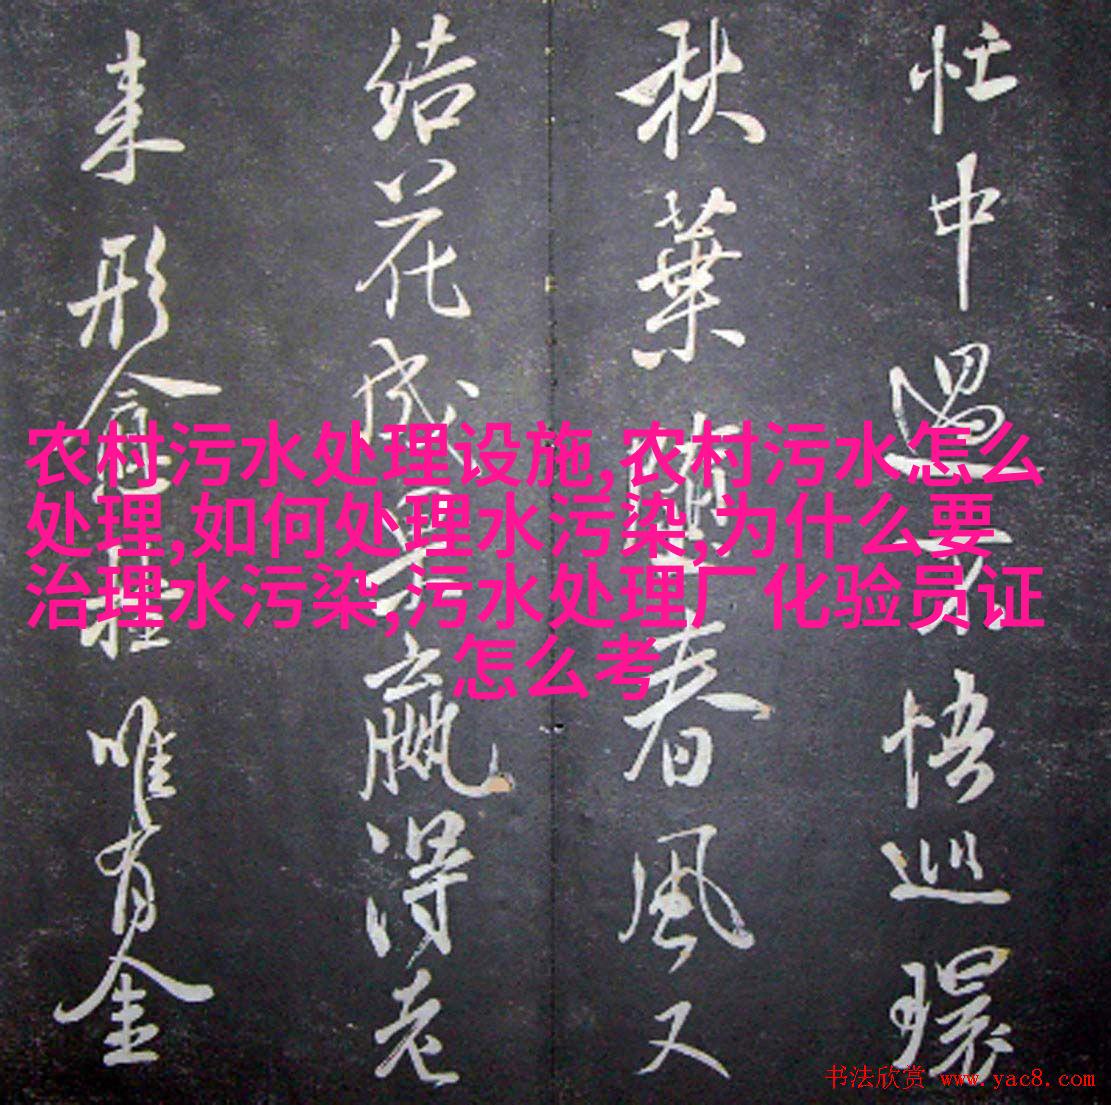 忙中遇
悟巡環
秋葉
春風又
结花成
嬴得老
来形
唯有金
农村污水处理设施,农村污水怎么
处理,如何处理水污染,为什么要
治理水污染,污水处理厂化验员证
怎么考
书法欣赏 www.yac8.com